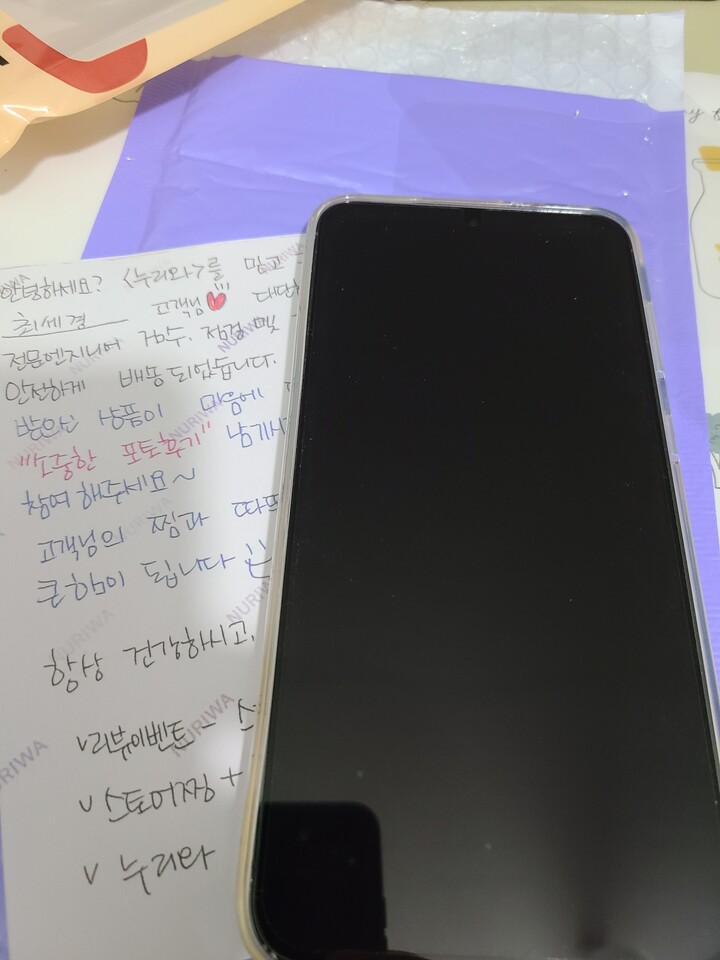 안녕하세요? <누리와>를 믿고
최세경 고객님
전문엔지니어 검수. 점검 및
안전하게 배송되었습니다.
받으신 상품이 마음에
"소중한 포토후기" 남기시
참여해주세요~
고객님의 찜과 따뜨
큰힘이 됩니다
항상 건강하시고,
v리뷰이벤트 - 스
v 스토어찜 +
v 누리와
NURIWA
NURIWA
NURIWA
NURIWA
NURIWA
NURIWA